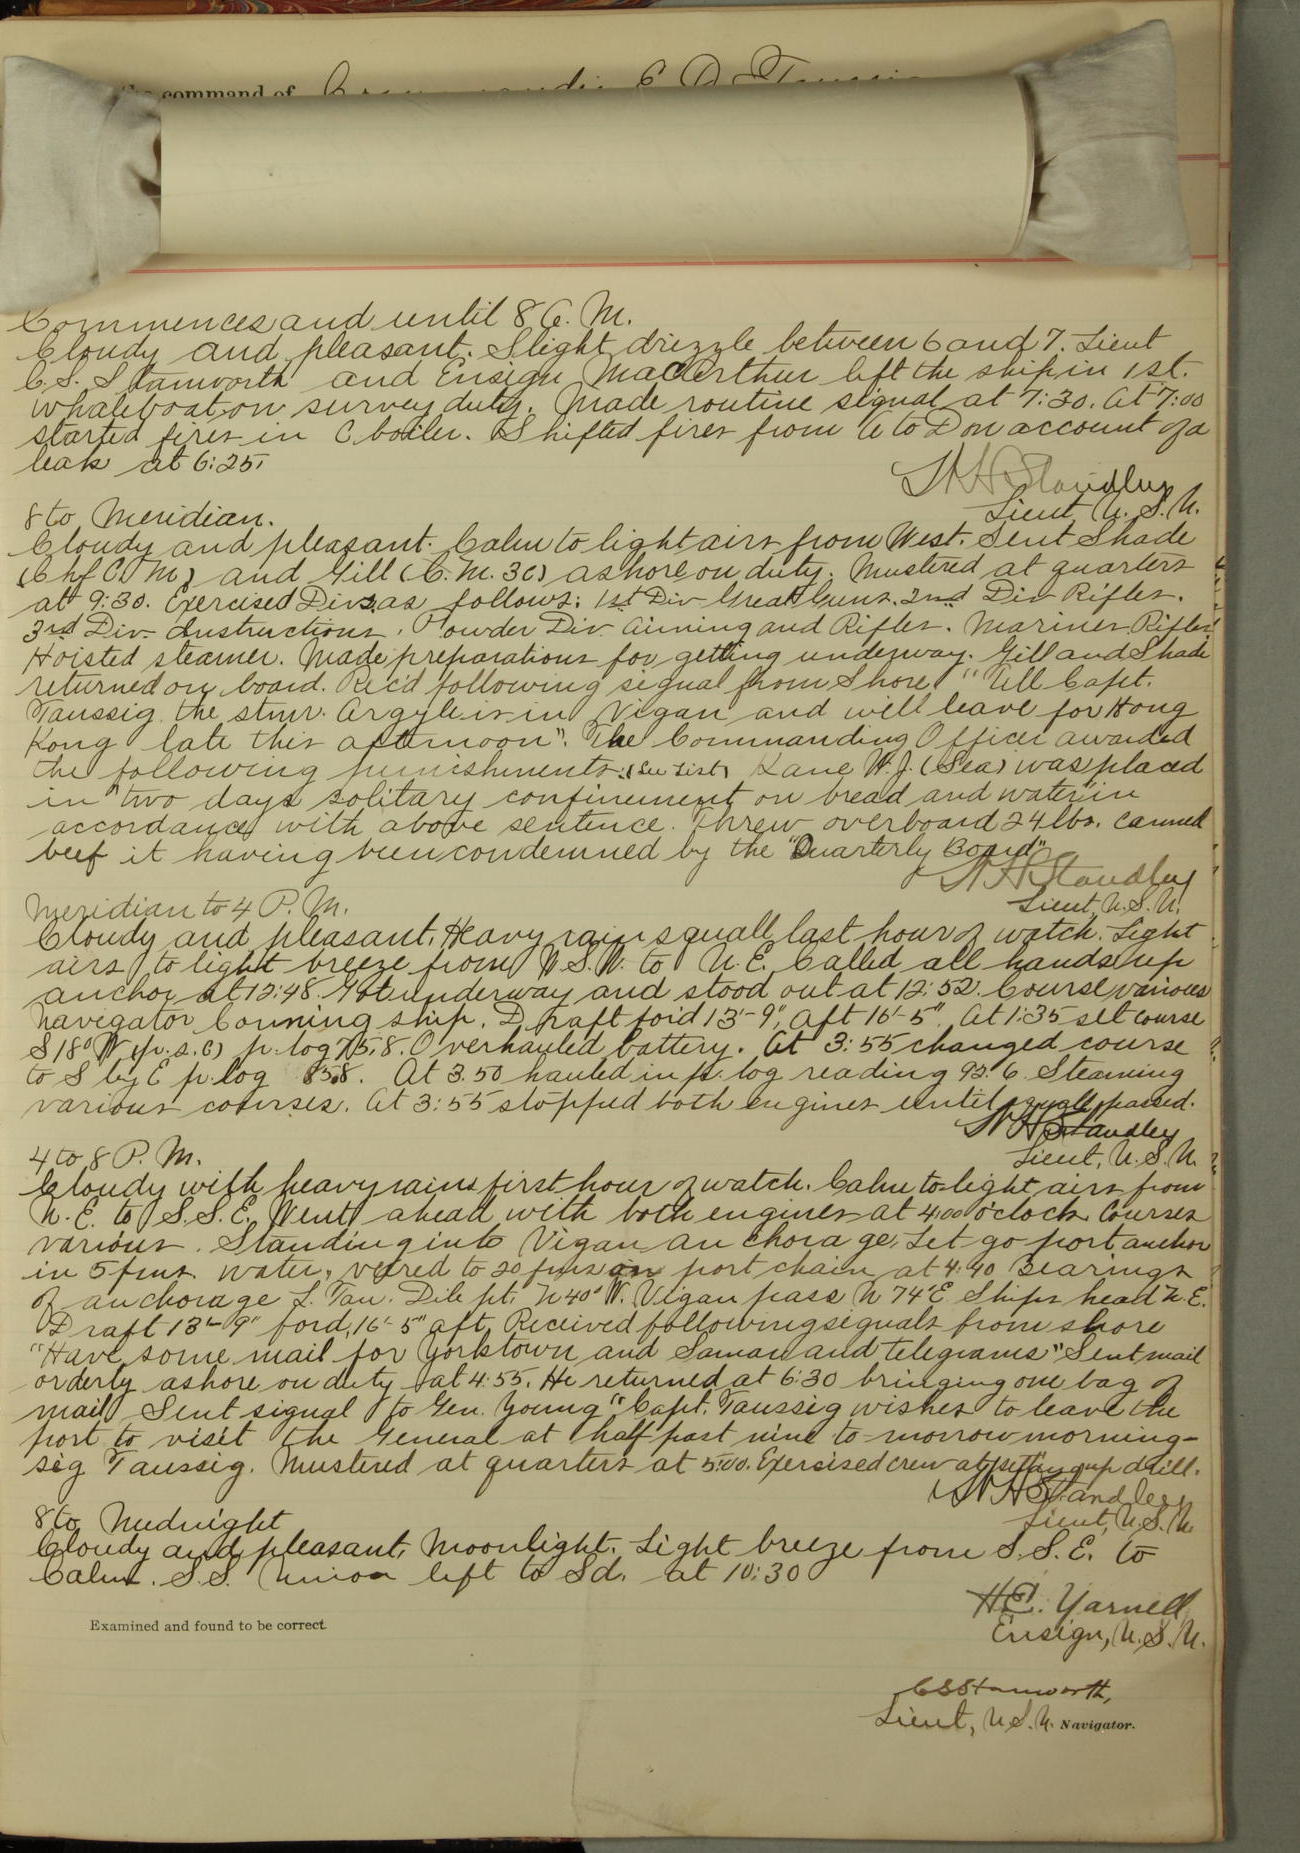 the command of Commander E. D. Taussig
Commences and until 8 A. M.
Cloudy and pleasant. Slight drizzle between 6 and 7. Lieut
C. S. Stanworth and Ensign MacArthur left the ship in 1st.
whaleboat on survey duty. Made routine signal at 7:30. At 7:00
started fires in C boiler. Shifted fires from A to D on account of a
leak at 6:25.
W H Standley
Lieut U. S. N.
8 to Meridian.
Cloudy and pleasant. Calm to light airs from West. Sent Shade
(Chf C. M.) and Gill (C. M. 3c) ashore on duty. Mustered at quarters
at 9:30. Exercised Divs as follows: 1st Div Great Guns. 2nd Div Rifles.
3rd Div- Instructions. Powder Div. Aiming and Rifles. Marines Rifles
Hoisted steamer. Made preparations for getting underway. Gill and Shade
returned on board. Rec'd following signal from Shore "Tell Capt.
Taussig the stmr. Argyle is in Vigan and will leave for Hong
Kong late this afternoon". The Commanding Officer awarded
the following punishments: (See List) Kane W. J. (Sea) was placed
in "two days solitary confinement on bread and water" in
accordance with above sentence. Threw overboard 24 lbs. canned
beef it having been condemned by the "Quarterly Board"
W H Standley
Lieut, U. S. N.
Meridian to 4 P. M.
Cloudy and pleasant. Heavy rain squall last hour of watch. Light
airs to light breeze from W. S. W. to N. E. Called all hands up
anchor at 12:48. Got underway and stood out at 12:52. Course various
navigator Conning ship. Draft for'd 13'-9", aft 16'-5". At 1:35 set course
S 18° W (p. s. c) p. log 75.8. Overhauled battery. At 3:55 changed course
to S by E p. log 85.8. At 3.50 hauled in p. log reading 92.6. Steaming
various courses. At 3:55 stopped both engines until squall passed.
W H Standley
Lieut, U. S. N.
4 to 8 P. M.
Cloudy with heavy rains first hour of watch. Calm to light airs from
N. E. to S. S. E. Went ahead with both engines at 4:00 o'clock Courses
various. Standing into Vigan anchorage. Let go port anchor
in 5 fms. water, veered to 20 fms on port chain at 4:40 Bearings
of anchorage L. Tan. Dile pt. N 40° W. Vigan pass N 74° E Ships head N. E.
Draft 13'-9" for'd, 16'-5" aft. Received following signals from shore
"Have some mail for Yorktown and Samar and telegrams" Sent mail
orderly ashore on duty at 4:55. He returned at 6:30 bringing one bag of
mail Sent signal to Gen. Young "Capt. Taussig wishes to leave the
port to visit the General at half past nine to-morrow morning-
sig Taussig. Mustered at quarters at 5:00. Exercised crew at setting up drill.
W H Standley
Lieut, U. S. N.
8 to Midnight
Cloudy and pleasant. Moonlight. Light breeze from S. S. E. to
Calm. S. S. Union left to Sd. at 10:30
H. E. Yarnell
Ensign, U. S. N.
Examined and found to be correct.
C S Stanworth,
Lieut, U. S. N. Navigator.